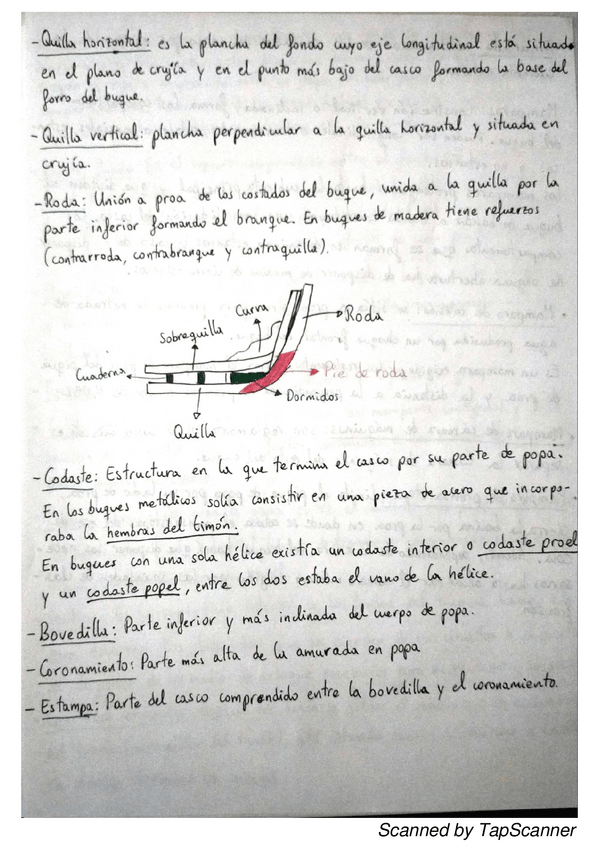 - Quilla horizontal: es la plancha del fondo cuyo eje longitudinal está situado
en el plano de crujía y en el punto más bajo del casco formando la base del
forro del buque.
- Quilla vertical: plancha perpendicular a la quilla horizontal y situada en
crujía.
- Roda: Unión a proa de los costados del buque, unida a la quilla por la
parte inferior formando el branque. En buques de madera tiene refuerzos
(contrarroda, contrabranque y contraquilla).
Curva
Roda
Sobrequilla
Cuaderna
Pie de roda
Dormidos
Quilla
- Codaste: Estructura en la que termina el casco por su parte de popa.
En los buques metálicos solía consistir en una pieza de acero que incorpo-
raba la hembras del timón.
En buques con una sola hélice existía un codaste interior o codaste proel
y un codaste popel, entre los dos estaba el vano de la hélice.
- Bovedilla: Parte inferior y más inclinada del cuerpo de popa.
- Coronamiento: Parte más alta de la amurada en popa
- Estampa: Parte del casco comprendido entre la bovedilla y el coronamiento.
Scanned by TapScanner